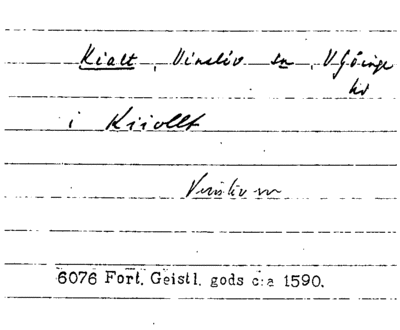 Kiatt, Vinslöv sn, V Göinge
hd
i Kiiollt
Vinslöv sn
6076 Fort. Geistl. gods c:a 1590.